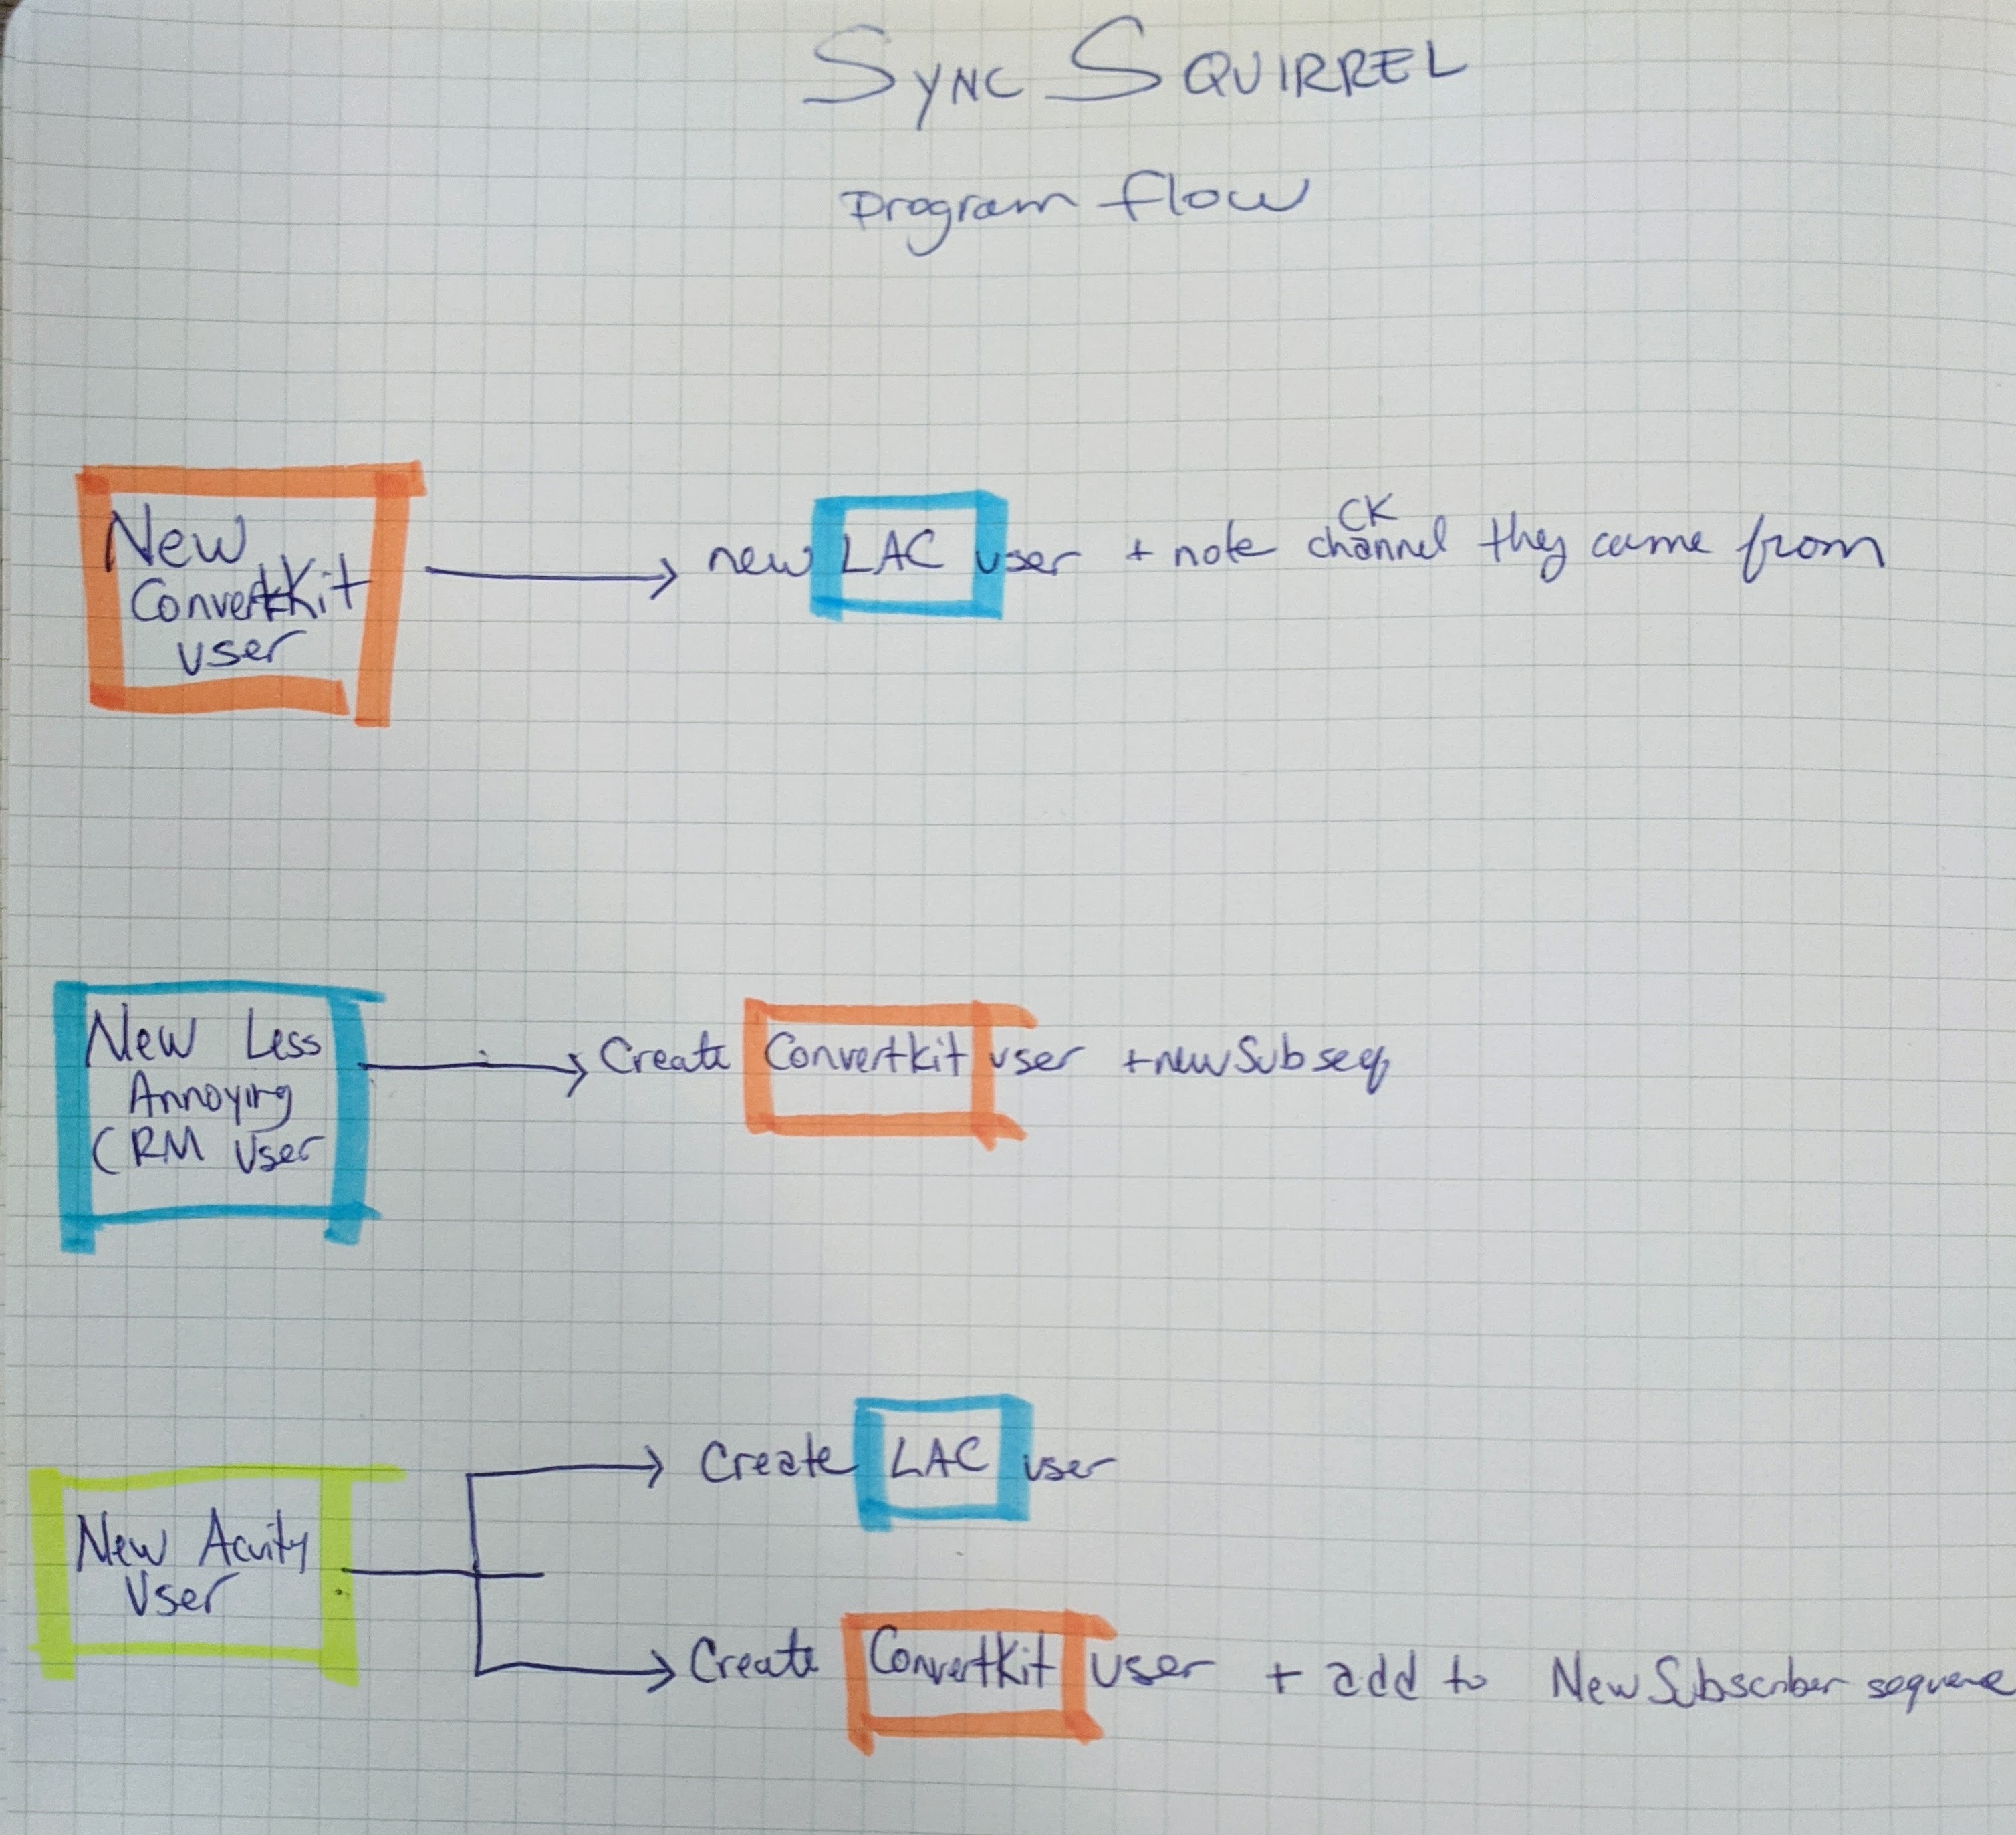 SYNC SQUIRREL
Program flow
New
ConvertKit
user
new LAC user + note CK channel they came from
New Less
Annoying
CRM User
Create Convertkit user + new Sub seq
New Acuity
User
Create LAC user
Create ConvertKit user + add to New Subscriber sequence